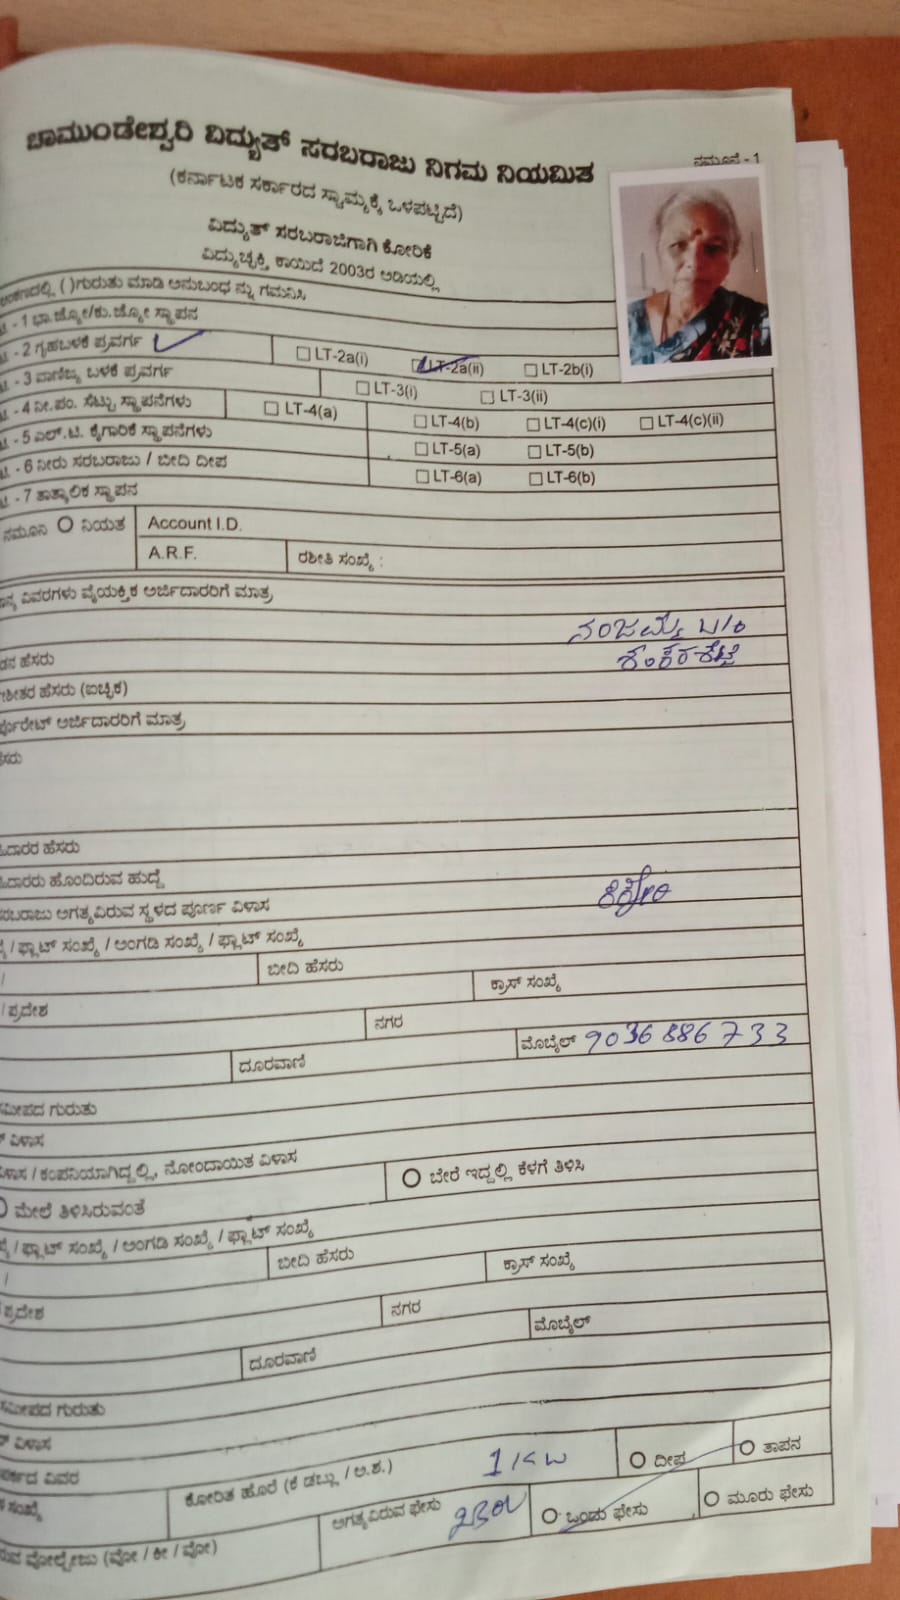 ಚಾಮುಂಡೇಶ್ವರಿ ವಿದ್ಯುತ್ ಸರಬರಾಜು ನಿಗಮ ನಿಯಮಿತ
ನಮೂನೆ - 1
(ಕರ್ನಾಟಕ ಸರ್ಕಾರದ ಸ್ವಾಮ್ಯಕ್ಕೆ ಒಳಪಟ್ಟಿದೆ)
ವಿದ್ಯುತ್ ಸರಬರಾಜಿಗಾಗಿ ಕೋರಿಕೆ
ವಿದ್ಯುಚ್ಛಕ್ತಿ ಕಾಯಿದೆ 2003ರ ಅಡಿಯಲ್ಲಿ
( )ಗುರುತು ಮಾಡಿ ಅನುಬಂಧ ನ್ನು ಗಮನಿಸಿ
- 1 ಭಾ.ಜ್ಯೋ/ಕು.ಜ್ಯೋ ಸ್ಥಾಪನ
- 2 ಗೃಹಬಳಕೆ ಪ್ರವರ್ಗ LT-2a(i) LT-2a(ii) LT-2b(i)
- 3 ವಾಣಿಜ್ಯ ಬಳಕೆ ಪ್ರವರ್ಗ LT-3(i) LT-3(ii)
- 4 ನೀ.ಪಂ. ಸೆಟ್ಟು ಸ್ಥಾಪನೆಗಳು LT-4(a) LT-4(b) LT-4(c)(i) LT-4(c)(ii)
- 5 ಎಲ್.ಟಿ. ಕೈಗಾರಿಕೆ ಸ್ಥಾಪನೆಗಳು LT-5(a) LT-5(b)
- 6 ನೀರು ಸರಬರಾಜು / ಬೀದಿ ದೀಪ LT-6(a) LT-6(b)
- 7 ತಾತ್ಕಾಲಿಕ ಸ್ಥಾಪನ
ನಮೂನಿ ನಿಯತ Account I.D.
A.R.F. ರಶೀತಿ ಸಂಖ್ಯೆ :
ವಿವರಗಳು ವೈಯಕ್ತಿಕ ಅರ್ಜಿದಾರರಿಗೆ ಮಾತ್ರ
ನಂಜಮ್ಮ
ಹೆಸರು ಶಂಕರಶೆಟ್ಟಿ
ಹೆಸರು (ಐಚ್ಛಿಕ)
ಅರ್ಜಿದಾರರಿಗೆ ಮಾತ್ರ
ಹೆಸರು
ಹೊಂದಿರುವ ಹುದ್ದೆ
ಅಗತ್ಯವಿರುವ ಸ್ಥಳದ ಪೂರ್ಣ ವಿಳಾಸ ಕಿಕ್ಕೇರಿ
/ ಫ್ಲಾಟ್ ಸಂಖ್ಯೆ / ಅಂಗಡಿ ಸಂಖ್ಯೆ / ಫ್ಲಾಟ್ ಸಂಖ್ಯೆ
/ ಬೀದಿ ಹೆಸರು ಕ್ರಾಸ್ ಸಂಖ್ಯೆ
/ ಪ್ರದೇಶ ನಗರ
ದೂರವಾಣಿ ಮೊಬೈಲ್ 9036886733
ಗುರುತು
ವಿಳಾಸ
/ ಕಂಪನಿಯಾಗಿದ್ದಲ್ಲಿ, ನೋಂದಾಯಿತ ವಿಳಾಸ
ಮೇಲೆ ತಿಳಿಸಿರುವಂತೆ ಬೇರೆ ಇದ್ದಲ್ಲಿ ಕೆಳಗೆ ತಿಳಿಸಿ
/ ಫ್ಲಾಟ್ ಸಂಖ್ಯೆ / ಅಂಗಡಿ ಸಂಖ್ಯೆ / ಫ್ಲಾಟ್ ಸಂಖ್ಯೆ
/ ಬೀದಿ ಹೆಸರು ಕ್ರಾಸ್ ಸಂಖ್ಯೆ
ಪ್ರದೇಶ ನಗರ
ದೂರವಾಣಿ ಮೊಬೈಲ್
ಗುರುತು
ವಿಳಾಸ
ವಿವರ
ಸಂಖ್ಯೆ ಕೋರಿತ ಹೊರೆ (ಕೆ ಡಬ್ಲ್ಯು / ಅ.ಶ.) 1 KW ದೀಪ ತಾಪನ
ವೋಲ್ಟೇಜು (ವೋ / ಕೀ / ವೋ) ಅಗತ್ಯವಿರುವ ಫೇಸು 230V ಒಂದು ಫೇಸು ಮೂರು ಫೇಸು